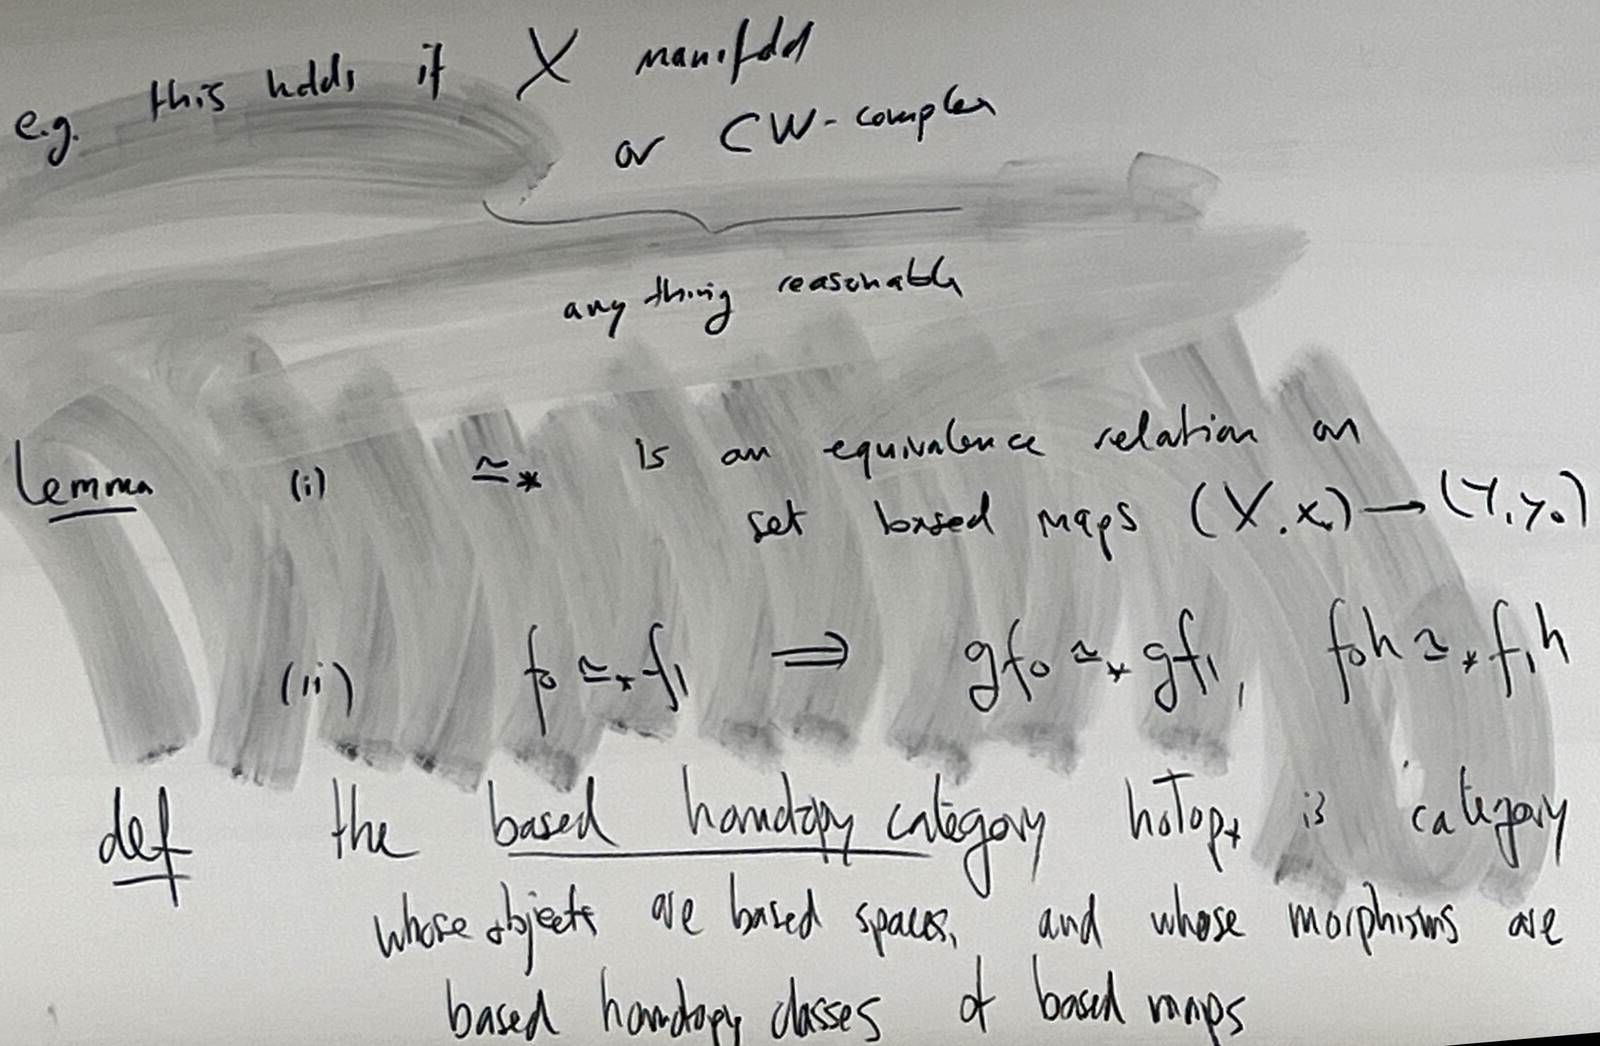 e.g. this holds if X manifold
or CW-complex
anything reasonable
Lemma (i) ≃* is an equivalence relation on
set based maps (X,x₀) → (Y,y₀)
(ii) f₀ ≃* f₁ ⟹ gf₀ ≃* gf₁, f₀h ≃* f₁h
def the based homotopy category hoTop* is category
whose objects are based spaces, and whose morphisms are
based homotopy classes of based maps